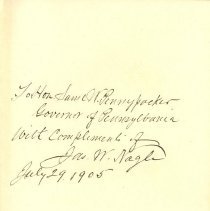 To Hon. Saml W. Pennypacker
Governor of Pennsylvania
With Compliments of
Jas. W. Nagle
July 29 1905